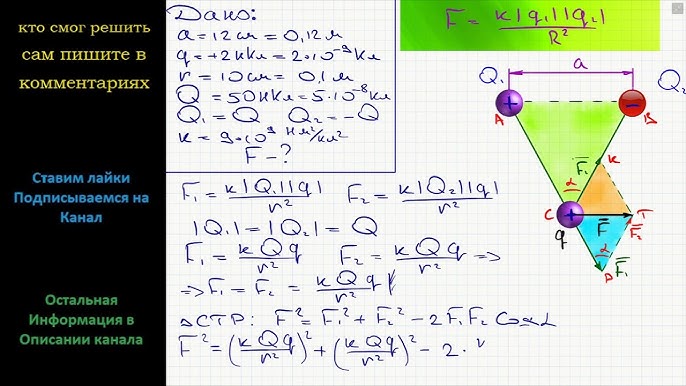 кто смог решить
сам пишите в
комментариях
Ставим лайки
Подписываемся на
Канал
Остальная
Информация в
Описании канала
Дано:
a = 12 см = 0,12 м
q = +2 нКл = 2·10⁻⁹ Кл
r = 10 см = 0,1 м
Q = 50 нКл = 5·10⁻⁸ Кл
Q₁ = Q Q₂ = -Q
k = 9·10⁹ Н м²/Кл²
F - ?
F₁ = k|Q₁||q|/r² F₂ = k|Q₂||q|/r²
|Q₁| = |Q₂| = Q
F₁ = kQq/r² F₂ = kQq/r² =>
=> F₁ = F₂ = kQq/r²
△CTP: F² = F₁² + F₂² - 2F₁F₂ Cosα
F² = (kQq/r²)² + (kQq/r²)² - 2 ·
F = k|q₁||q₂|/R²
Q₁ a Q₂
+ -
A B
F₁ K
α
C + F T
q F₂
α
P F₁